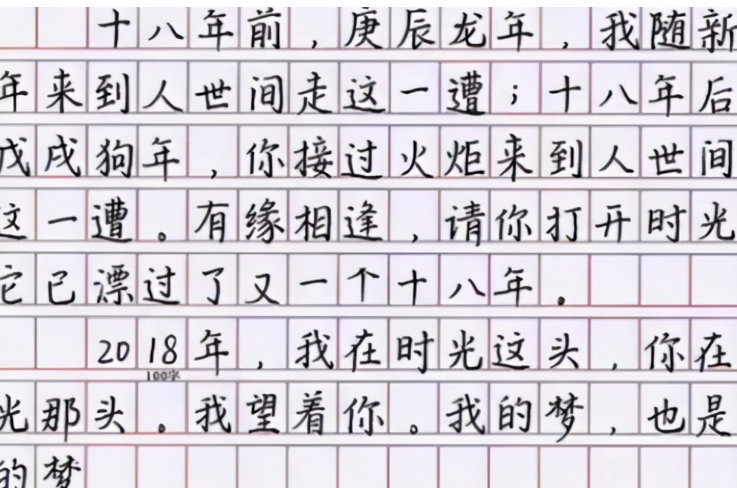 十八年前，庚辰龙年，我随新
年来到人世间走这一遭；十八年后
戊戌狗年，你接过火炬来到人世间
这一遭。有缘相逢，请你打开时光
它已漂过了又一个十八年。
2018年，我在时光这头，你在
100字
光那头。我望着你。我的梦，也是
的梦